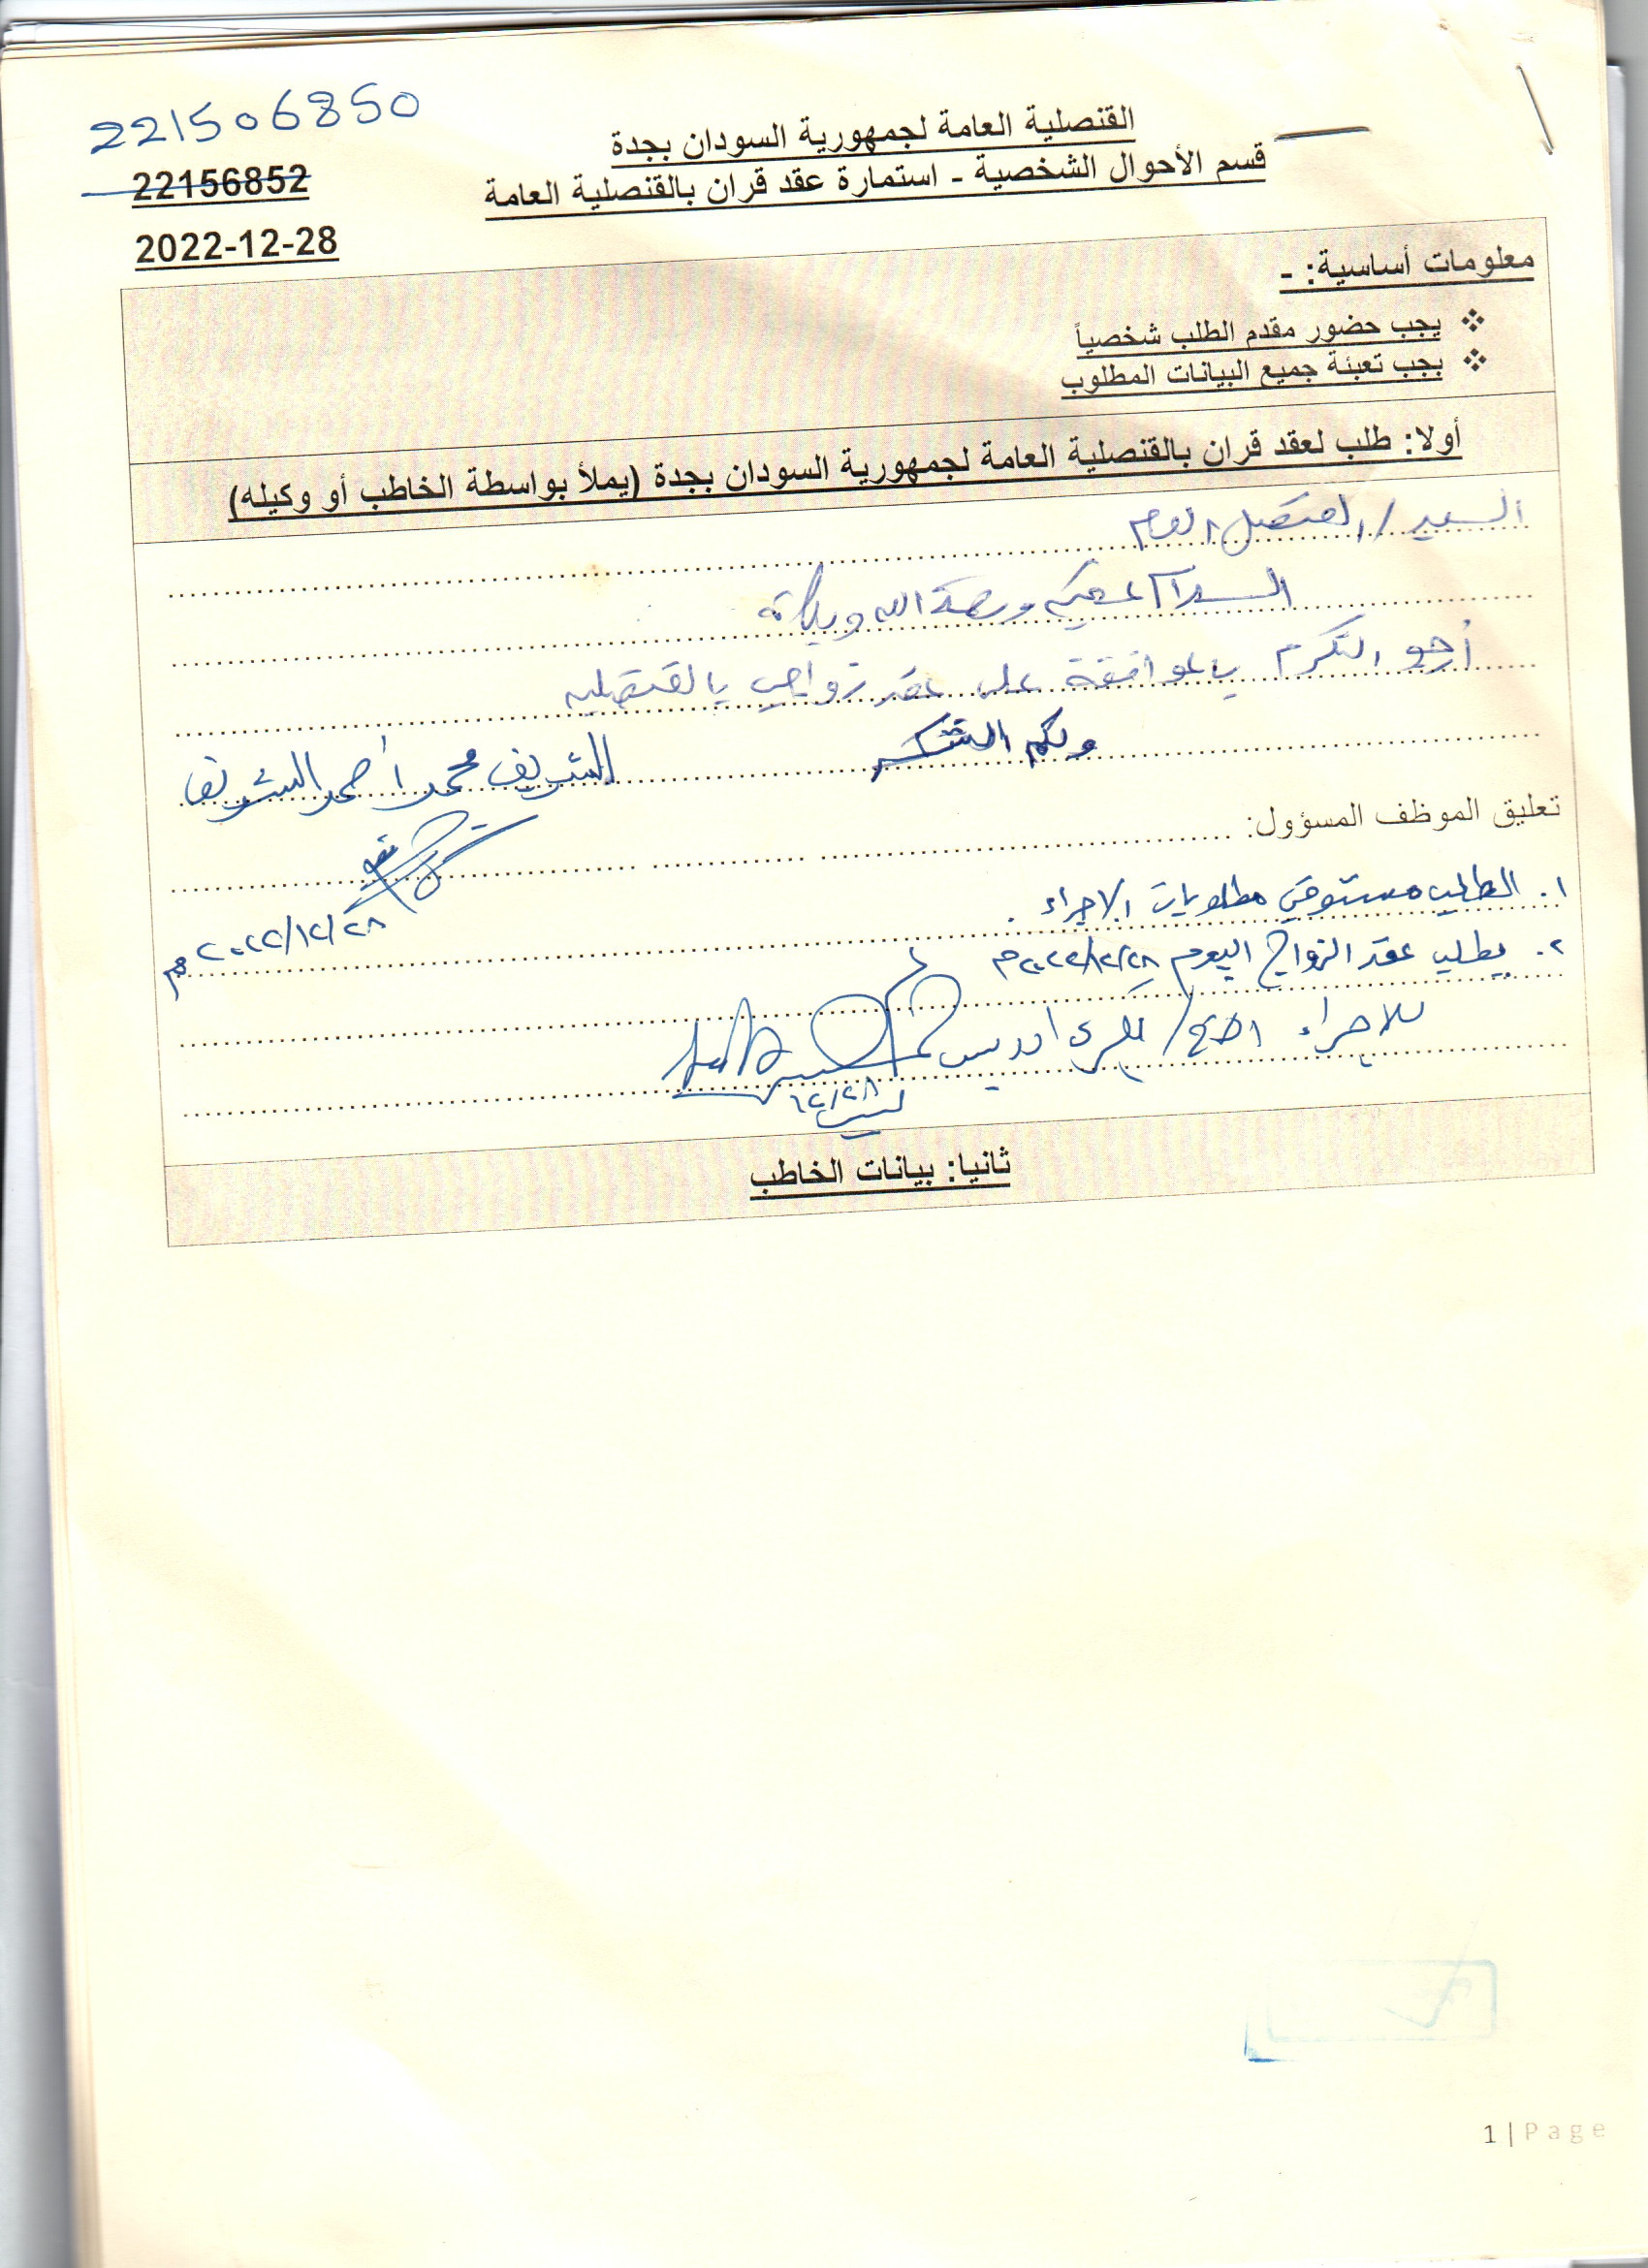 القنصلية العامة لجمهورية السودان بجدة
قسم الأحوال الشخصية - استمارة عقد قران بالقنصلية العامة
221506850
22156852
2022-12-28
معلومات أساسية: -
❖ يجب حضور مقدم الطلب شخصياً
❖ يجب تعبئة جميع البيانات المطلوب
أولا: طلب لعقد قران بالقنصلية العامة لجمهورية السودان بجدة (يملأ بواسطة الخاطب أو وكيله)
السيد / القنصل العام
السلام عليكم ورحمة الله وبركاته
أرجو التكرم بالموافقة على عقد زواجي بالقنصليه
ولكم الشكر
الشريف محمد أحمد الشريف
تعليق الموظف المسؤول:
٢٠٢٢/١٢/٢٨م
١. الطلب مستوفي مطلوبات الاجراء.
٢. يطلب عقد الزواج اليوم ٢٠٢٢/١٢/٢٨م
للاجراء / ادريس
١٢/٢٨
ثانيا: بيانات الخاطب
1 | Page